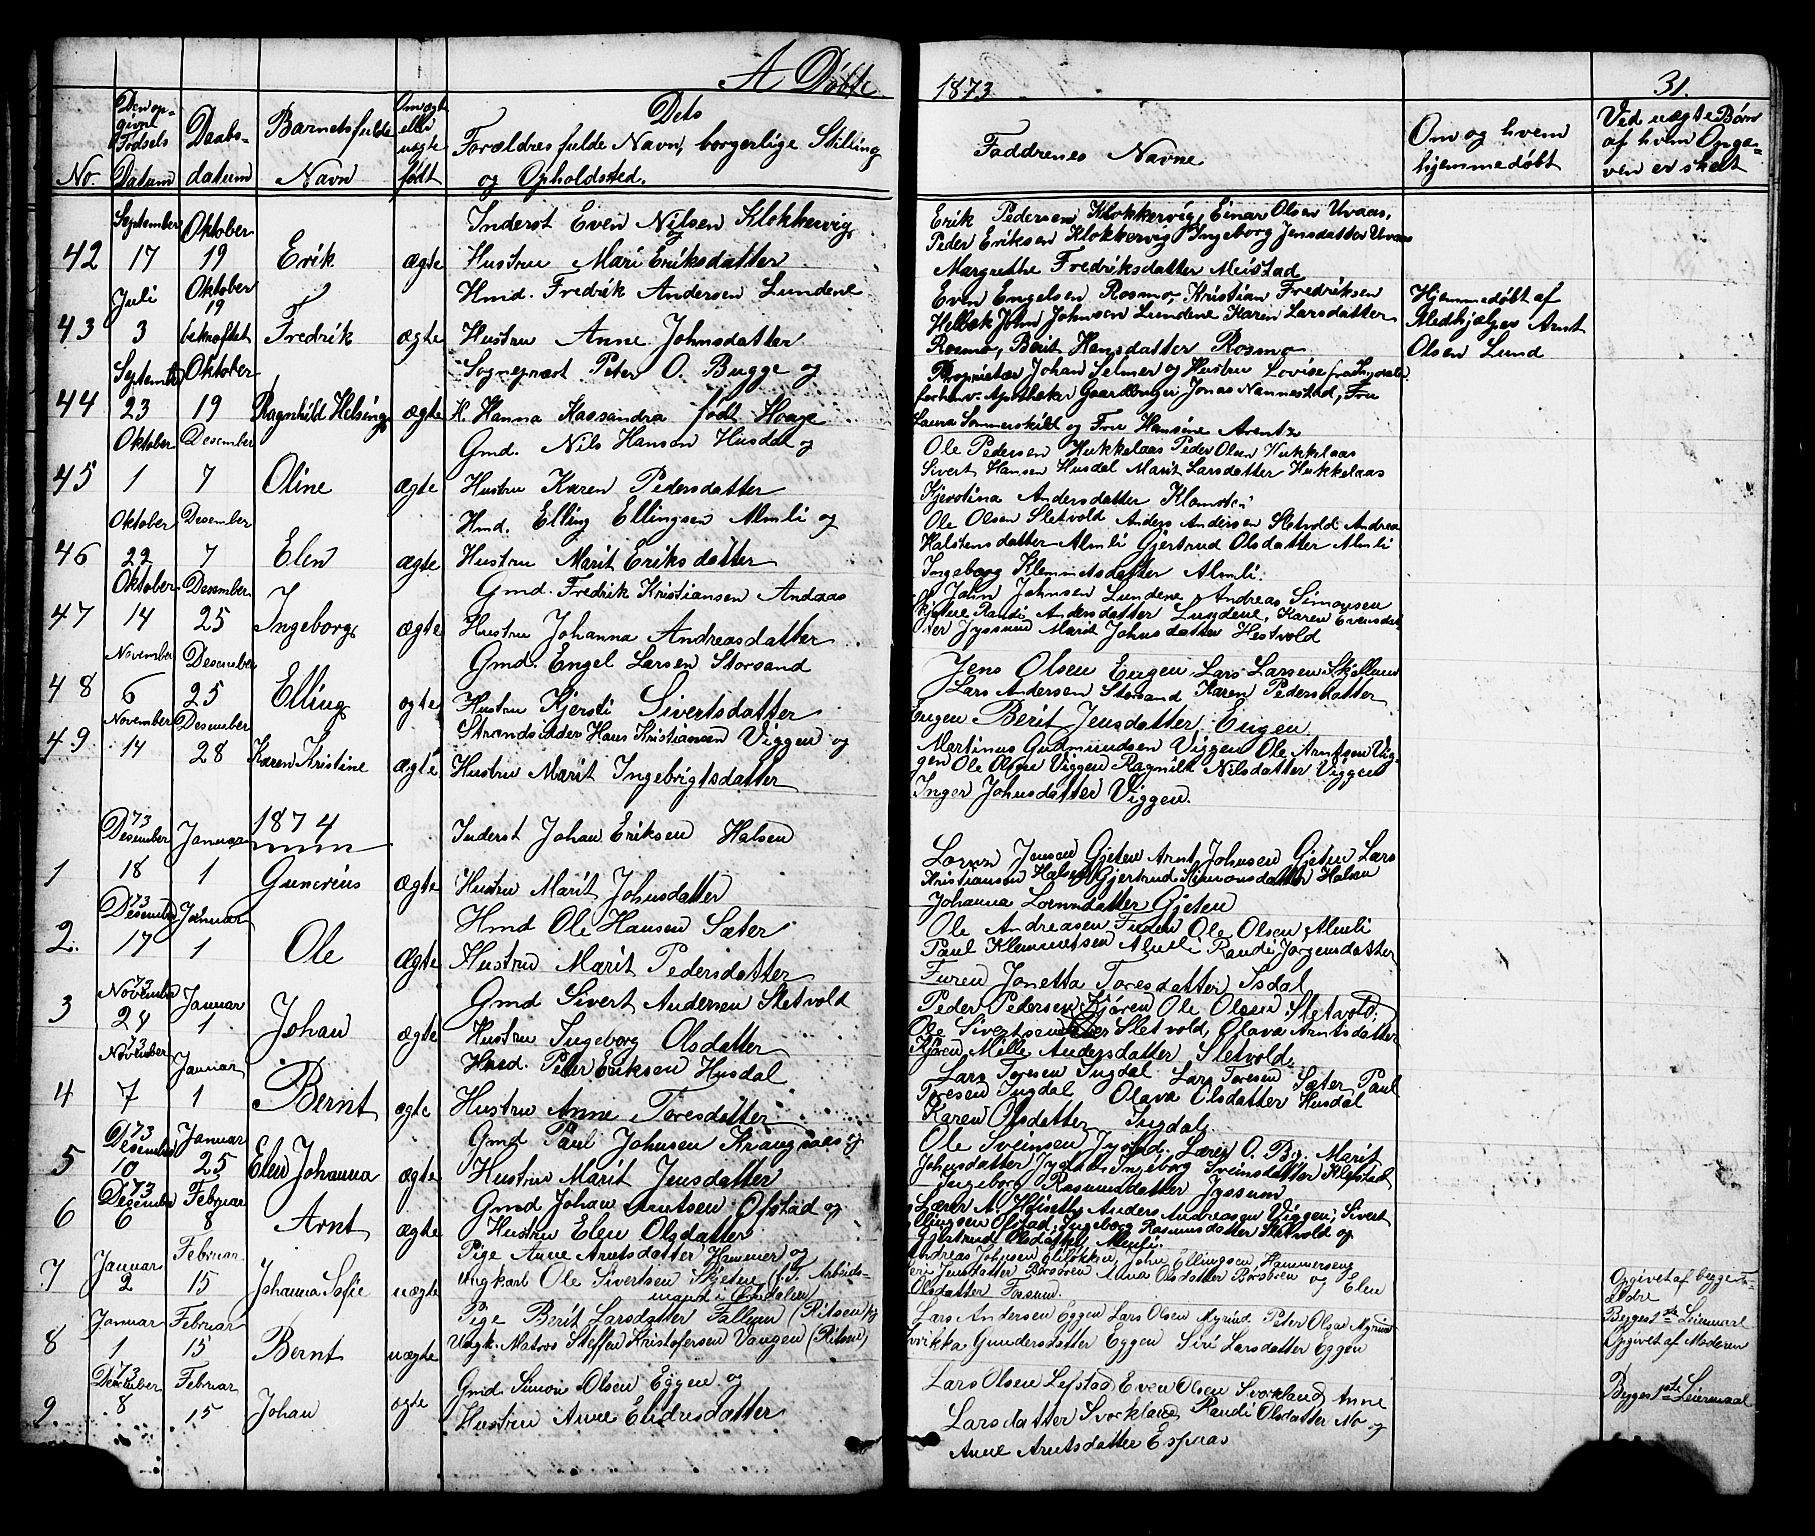 A Døbte 1873 31.
No.
Den opgivne Fødsels Datum
Daabsdatum
Barnets fulde Navn
Om ægte eller uægte født
Dets Forældres fulde Navn, borgerlige Stilling og Opholdssted.
Faddrenes Navne
Om og hvem hjemmedøbt
Ved uægte Børn af hvem Opgaven er skeet
42 September 17 Oktober 19 Erik ægte
Inderst Even Nilsen Klokkervig
Hustru Mari Eriksdatter
Erik Pedersen Klokkervig, Einar Olsen Uvaas,
Peder Eriksen Klokkervig Ingeborg Jensdatter Uvaas
Margrethe Fredriksdatter Meistad
43 Juli 3 Oktober 19 bekræftet Fredrik ægte
Hmd. Fredrik Andersen Lundene
Hustru Anne Johnsdatter
Even Engelsen Rosmo, Kristian Fredriksen
Helbæk John Johnsen Lundene Karen Larsdatter
Rosmo, Berit Hansdatter Rosmo
Hjemmedøbt af
Medhjælper Arnt
Olsen Lund
44 September 23 Oktober 19 Ragnhild Helsing ægte
Sogneprest Peter O. Bugge og
H. Hanna Kassandra født Hoage
Proprietær Johan Selmer og Hustru Lovise
forhenv. Apotheker Gaardbruger Jonas Nannestad, Fru
Laura Sommerskild og Fru Hansine Arentz
45 Oktober 1 Desember 7 Oline ægte
Gmd. Nils Hansen Husdal og
Hustru Karen Pedersdatter
Ole Pedersen Hukkelaas Peder Olsen Hukkelaas
Sivert Hansen Husdal Marit Larsdatter Hukkelaas
Andersdatter
46 Oktober 22 Desember 7 Elen ægte
Hmd. Elling Ellingsen Almli og
Hustru Marit Eriksdatter
Ole Olsen Sletvold Anders Andersen Sletvold Andrea
Halstensdatter Almli Gjertrud Olsdatter Almli
Ingeborg Klemmetsdatter Almli.
47 Oktober 14 Desember 25 Ingeborg ægte
Gmd. Fredrik Kristiansen Andaas
Hustru Johanna Andreasdatter
John Johnsen Lundene Andreas Simonsen
Randi Andersdatter Lundene, Karen Evensdat
ter Jyssum Marit Johnsdatter Hestvold
48 November 6 Desember 25 Elling ægte
Gmd. Engel Larsen Storsand
Hustru Kjersti Sivertsdatter
Jens Olsen Engen Lars Larsen
Lars Andersen Storsand Karen Pedersdatter
Engen Berit Jensdatter, Engen
49 November 14 Desember 28 Karen Kristine ægte
Strandsidder Hans Kristiansen Viggen og
Hustru Marit Ingebrigtsdatter
Martinus Gudmundsen Viggen Ole Arntsen Vig-
gen Ole Olsen Viggen Ragnild Nilsdatter Viggen
Inger Johnsdatter Viggen.
1874
1 73 Desember 18 Januar 1 Gunerius ægte
Inderst Johan Eriksen Halsen
Hustru Marit Johnsdatter
Jensen Gjeten Arnt Johnsen Gjeten Lars
Kristiansen Halsen Gjertrud Simonsdatter Halsen
Johanna Gjeten
2. 73 Desember 17 Januar 1 Ole ægte
Hmd Ole Hansen Sæter
Hustru Marit Pedersdatter
Ole Andreasen Furen Ole Olsen Almli
Paul Klemmetsen Almli Randi Jørgensdatter
Furen Jonetta Toresdatter Isdal
3 73 November 24 Januar 1 Johan ægte
Gmd Sivert Andersen Sletvold
Hustru Ingeborg Olsdatter
Peder Pedersen Kjøren Ole Olsen Sletvold
Ole Sivertsen Sletvold, Olava Arntsdatter
Kjøren Mille Andersdatter Sletvold
4 73 November 7 Januar 1 Bernt ægte
Hmd. Peter Eriksen Husdal
Hustru Anne Toresdatter
Lars Toresen Ingdal Lars Toresen Sæter Paul
Toresen Ingdal Olava Olsdatter Husdal
Karen Olsdatter Ingdal
5 73 Desember 10 Januar 25 Elen Johanna ægte
Gmd Paul Johnsen Krangsaas og
Hustru Marit Jensdatter
Ole Sveinsen Lærer O. By. Marit
Johnsdatter Ingeborg Sveinsdatter Klefstad
Ingeborg Rasmusdatter Jyssum
6 73 Desember 6 Februar 8 Arnt ægte
Gmd Johan Arntsen Ofstad og
Hustru Elen Olsdatter
Lærer A. Høiseth, Anders Andreasen Viggen, Sivert
Ellingsen Ofstad, Ingeborg Rasmusdatter Sletvold og
Gjertrud Olsdatter Almli.
7 Januar 2 Februar 15 Johanna Sofie uægte
Pige Anne Arntsdatter Hammer og
Ungkarl Ole Sivertsen Skjeten (f. T. Arbeids-
mand i Ørkdalen)
Andreas Johnsen John Ellingsen, Hammerseng
Jensdatter Børsøren Anna Olsdatter Børsøren og Elen
Olsdatter Fossum
Opgivet af begge For-
ældre
Begges 1ste Leiermaal
8 Januar 1 Februar 15 Bernt uægte
Pige Berit Larsdatter Fallum (Ritsen) og
Ungk. Matros Steffen Kristofersen Vangen (Ritsen)
Lars Andersen Eggen Lars Olsen Myrud Peter Olsen Myrud
Gundersdatter Eggen Siri Larsdatter Eggen
Opgivet af Moderen
Begges 1ste Leiermaal
9. 73 December 8 Februar 15 Johan ægte
Gmd. Simon Olsen Eggen og
Hustru Anne Elidrusdatter
Lars Olsen Lefstad, Even Olsen Svorkland, Anne
Larsdatter Svorkland Randi Olsdatter Mo og
Anne Arntsdatter Espaas